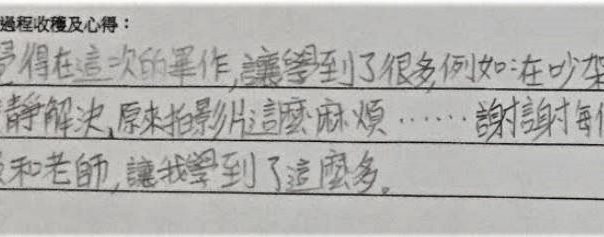 過程收穫及心得：
覺得在這次的畢作,讓學到了很多,例如:在吵架
靜解決,原來拍影片這麼麻煩……謝謝每
和老師,讓我學到了這麼多。